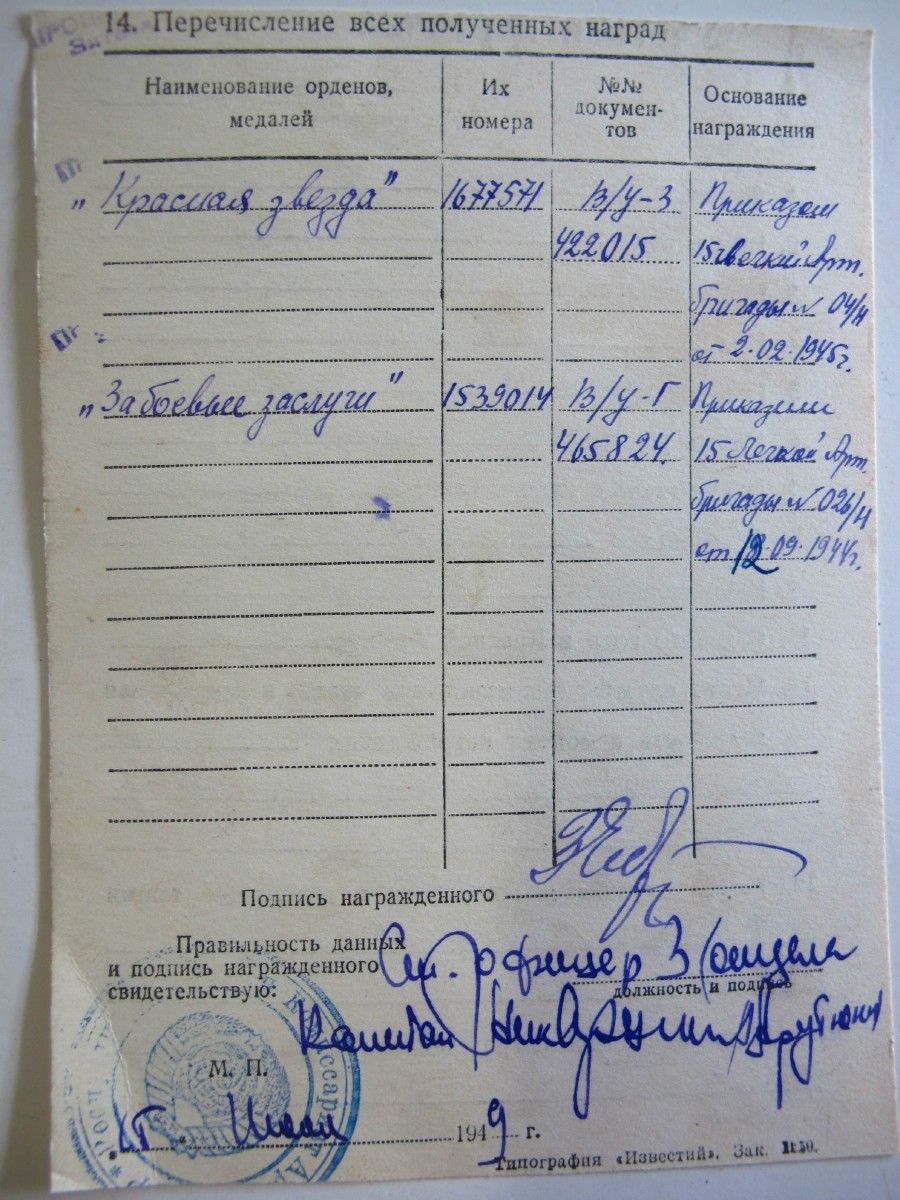 14. Перечисление всех полученных наград
Наименование орденов,
медалей
Их
номера
№№
докумен-
тов
Основание
награждения
„Красная звезда"
1677571
В/у-З
422015
Приказом
15 Легкой Арт.
бригады № 04/н
от 2.02.1945г.
„За боевые заслуги"
1539014
В/у-Г
465824.
Приказом
15 Легкой Арт.
бригады № 026/н
от 12.09.1944г.
Подпись награжденного
Правильность данных
и подпись награжденного
свидетельствую:
Ст. офицер 3/отдела
должность и подпись
Капитан
М. П.
Июля 1949 г.
Типография «Известий». Зак. 1150.